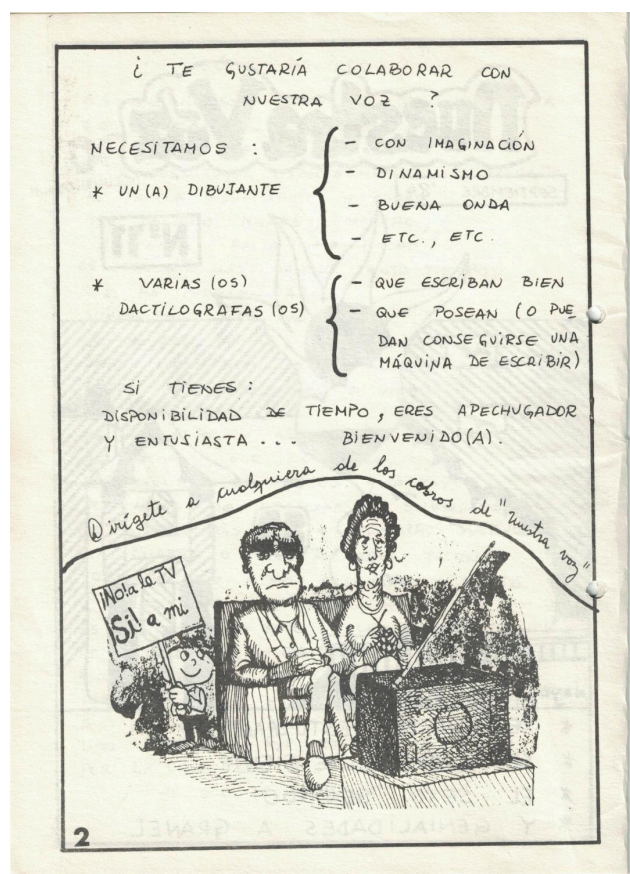 ¿ TE GUSTARÍA COLABORAR CON
NUESTRA VOZ ?
NECESITAMOS :
* UN(A) DIBUJANTE
- CON IMAGINACIÓN
- DINAMISMO
- BUENA ONDA
- ETC., ETC.
* VARIAS (OS)
DACTILOGRAFAS (OS)
- QUE ESCRIBAN BIEN
- QUE POSEAN (O PUE
DAN CONSEGUIRSE UNA
MÁQUINA DE ESCRIBIR)
SI TIENES :
DISPONIBILIDAD DE TIEMPO, ERES APECHUGADOR
Y ENTUSIASTA ... BIENVENIDO(A).
Dirígete a cualquiera de los cobros de "nuestra voz"
¡No! a la TV
Si! a mi
2